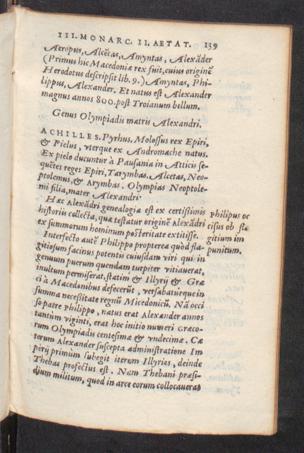 III. MONARC. II. AETAT. 159
Aeropus, Alcetas, Amyntas, Alexãder
(Primus hic Macedoniæ rex fuit, cuius originẽ
Herodotus descripsit lib. 9.) Amyntas, Phi-
lippus, Alexander. Et natus est Alexander
magnus annos 800. post Troianum bellum.
Genus Olympiadis matris Alexandri.
ACHILLES. Pyrhus. Molossus rex Epiri,
& Pielus, vterque ex Andromache natus.
Ex pielo ducuntur à Pausania in Atticis se-
quẽtes reges Epiri, Tarymbas, Alcetas, Neo-
ptolemus, & Arymbas. Olympias Neoptole-
mi filia, mater Alexandri
Hæc Alexãdri genealogia est ex certissimis
historiis collecta, quæ testatur originẽ Alexãdri
ex summorum hominum posteritate extitisse.
Philippus oc
cisus ob fla
gitium im
punitum.
Interfecto autẽ Philippo propterea quòd fla-
gitiosum facinus potentis cuiusdam viri qui in
genuum puerum quendam turpiter vitiauerat,
inultum permiserat, statim & Illyrij & Græ
ci à Macedonibus defecerũt, versabaturque in
summa necessitate regnũ Micedonicũ. Nã occi
so patre Philippo, natus erat Alexander annos
tantùm viginti, erat hoc initio numeri Græco-
rum Olympiadis centesima & vndecima. Cæ
terum Alexander suscepta administratione Im
perij primùm subegit iterum Illyries, deinde
Thebas profectus est. Nam Thebani præsi-
dium militum, quod in arce eorum collocauerat